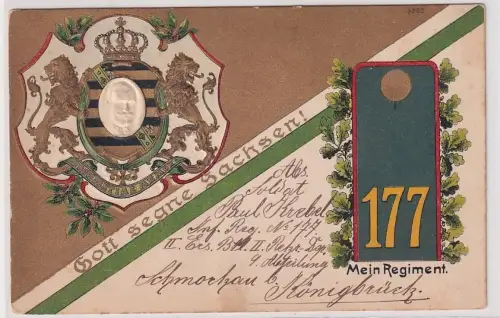 Gott segne Sachsen!
Abs.
Soldat
Paul Krebel
Inf. Reg. No 177
II. Ers. Btl. II. Rekr. Dep.
9. Abteilung
Schmorkau b.
Königbrück.
177
Mein Regiment.